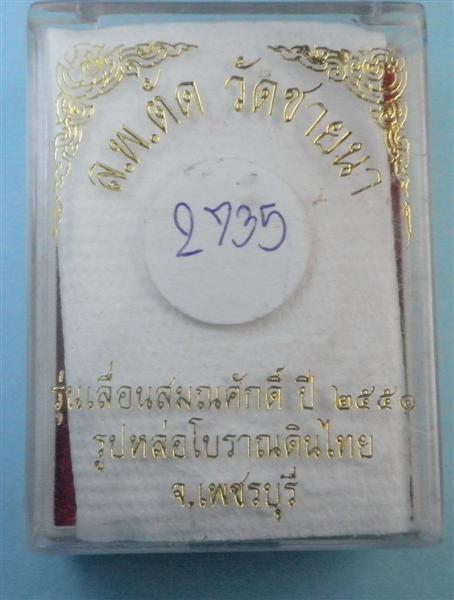 ล.พ.ตัด วัดชายนา
2735
รุ่นเลื่อนสมณศักดิ์ ปี ๒๕๕๑
รูปหล่อโบราณดินไทย
จ.เพชรบุรี